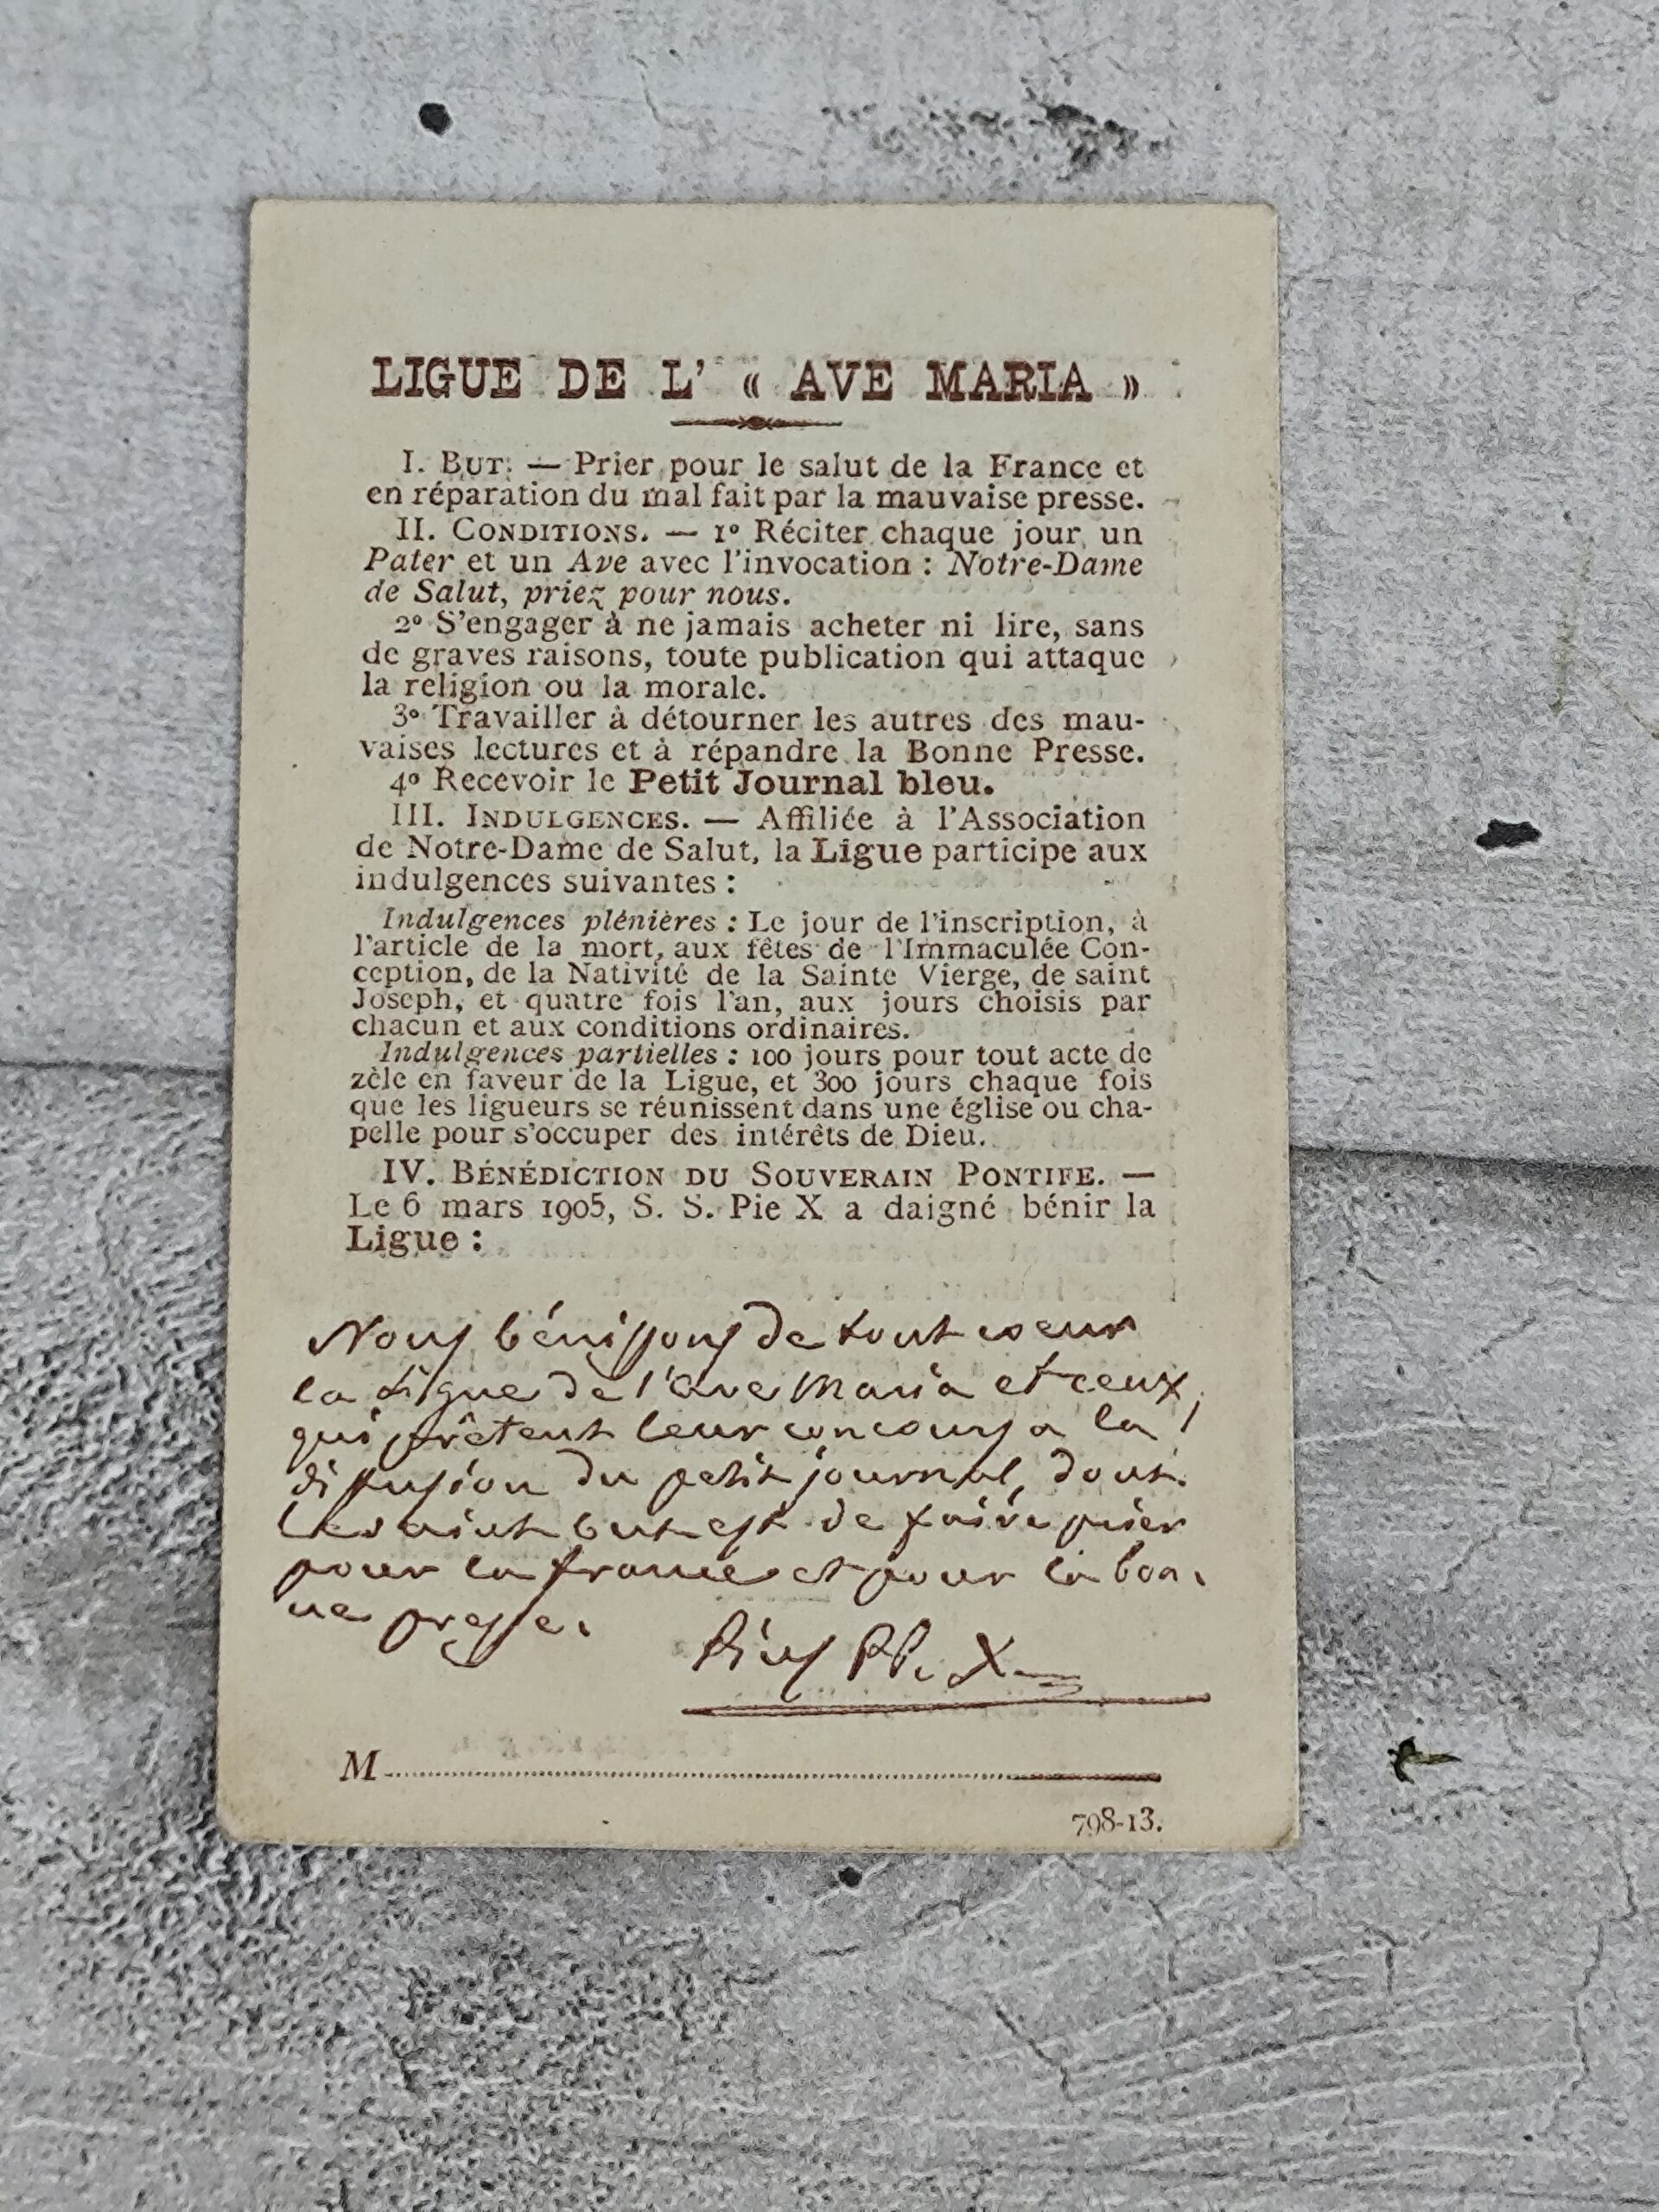 LIGUE DE L' « AVE MARIA »
I. BUT. — Prier pour le salut de la France et
en réparation du mal fait par la mauvaise presse.
II. CONDITIONS. — 1º Réciter chaque jour un
Pater et un Ave avec l'invocation : Notre-Dame
de Salut, priez pour nous.
2º S'engager à ne jamais acheter ni lire, sans
de graves raisons, toute publication qui attaque
la religion ou la morale.
3º Travailler à détourner les autres des mau-
vaises lectures et à répandre la Bonne Presse.
4º Recevoir le Petit Journal bleu.
III. INDULGENCES. — Affiliée à l'Association
de Notre-Dame de Salut, la Ligue participe aux
indulgences suivantes :
Indulgences plénières : Le jour de l'inscription, à
l'article de la mort, aux fêtes de l'Immaculée Con-
ception, de la Nativité de la Sainte Vierge, de saint
Joseph, et quatre fois l'an, aux jours choisis par
chacun et aux conditions ordinaires.
Indulgences partielles : 100 jours pour tout acte de
zèle en faveur de la Ligue, et 300 jours chaque fois
que les ligueurs se réunissent dans une église ou cha-
pelle pour s'occuper des intérêts de Dieu.
IV. BÉNÉDICTION DU SOUVERAIN PONTIFE. —
Le 6 mars 1905, S. S. Pie X a daigné bénir la
Ligue :
Nous bénissons de tout coeur
la Ligue de l'Ave Maria et ceux,
qui prêtent leur concours a la
diffusion du petit journal, dont
le saint but est de faire prier
pour la france et pour la bon-
ne presse.
Pius PP. X
M
798-13.